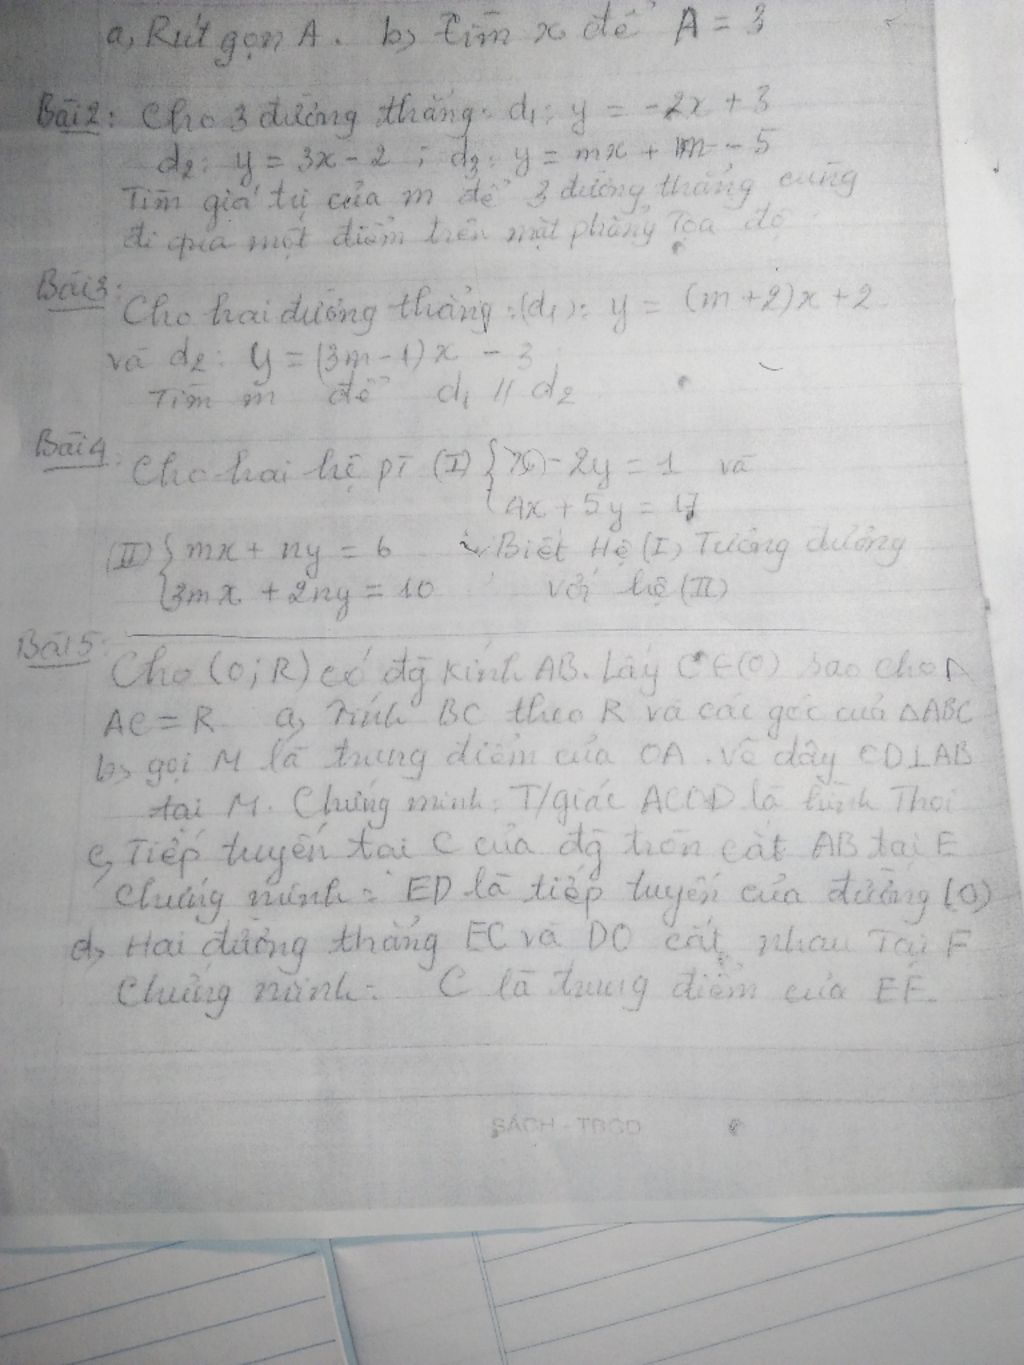 a, Rút gọn A. b, Tìm x để A = 3
Bài 2: Cho 3 đường thẳng: d₁: y = -2x + 3
d₂: y = 3x - 2 ; d₃: y = mx + m - 5
Tìm giá trị của m để 3 đường thẳng cùng
đi qua một điểm trên mặt phẳng Tọa độ
Bài 3:
Cho hai đường thẳng: (d₁): y = (m+2)x + 2
và d₂: y = (3m-1)x - 3
Tìm m để d₁ // d₂
Bài 4:
Cho hai hệ pt (I) { - 2y = 1 và
4x + 5y = 17
(II) { mx + ny = 6 Biết Hệ (I) Tương đương
3mx + 2ny = 10 với hệ (II)
Bài 5:
Cho (O; R) có đg kính AB. Lấy C ∈ (O) sao cho
AC = R a, Tính BC theo R và các góc của ΔABC
b, gọi M là trung điểm của OA. Vẽ dây CD⊥AB
tại M. Chứng minh: T/giác ACOD là hình Thoi
c, Tiếp tuyến tại C của đg tròn cắt AB tại E
Chứng minh: ED là tiếp tuyến của đường (O)
d, Hai đường thẳng EC và DO cắt nhau Tại F
Chứng minh: C là trung điểm của EF.
SÁCH - TBGD